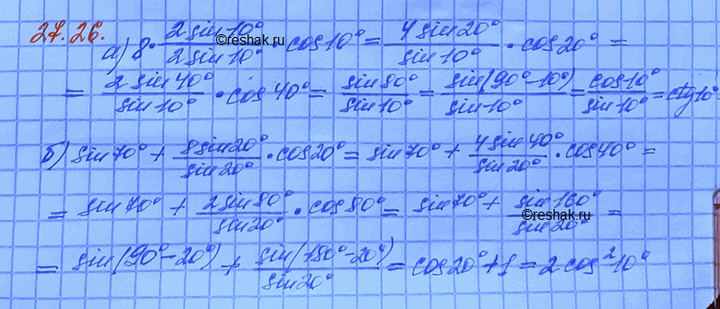 27.26.
а) 8 · 2 sin 10° / 2 sin 10° · cos 10° = 4 sin 20° / sin 10° · cos 20° =
= 2 sin 40° / sin 10° · cos 40° = sin 80° / sin 10° = sin(90° - 10°) / sin 10° = cos 10° / sin 10° = ctg 10°
б) sin 70° + 8 sin 20° / sin 20° · cos 20° = sin 70° + 4 sin 40° / sin 20° · cos 40° =
= sin 70° + 2 sin 80° / sin 20° · cos 80° = sin 70° + sin 160° / sin 20° =
= sin(90° - 20°) + sin(180° - 20°) / sin 20° = cos 20° + 1 = 2 cos² 10°
©reshak.ru
©reshak.ru